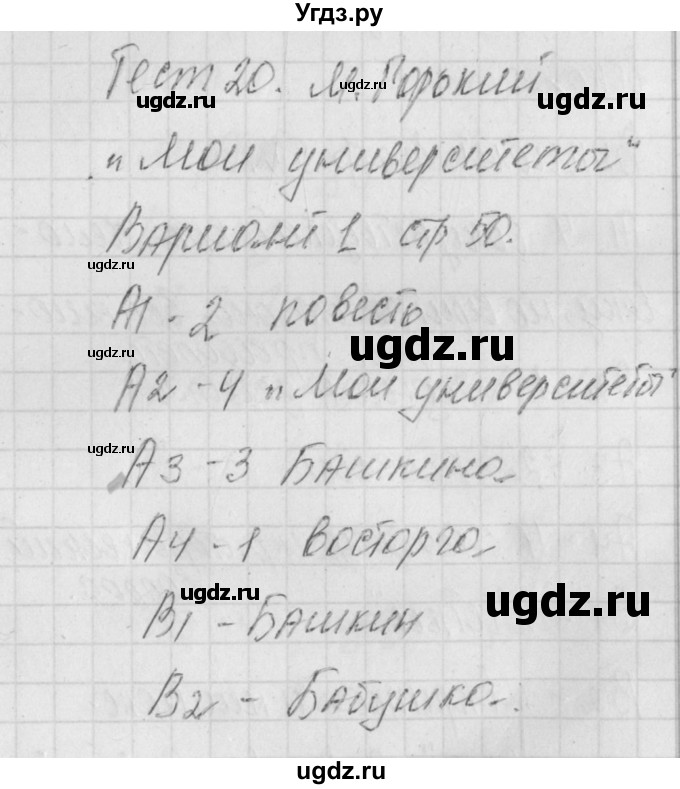 Угдз.ру
Тест 20. М. Горький
ugdz.ru ugdz.ru
"Мои университеты"
Вариант 1 стр 50.
ugdz.ru
А1 - 2 повесть
ugdz.ru
ugdz.ru
А2 - 4 "Мои университеты"
ugdz.ru
А3 - 3 Башкина
А4 - 1 восторга
ugdz.ru
ugdz.ru
В1 - Башкин
В2 - Бабушка.
ugdz.ru